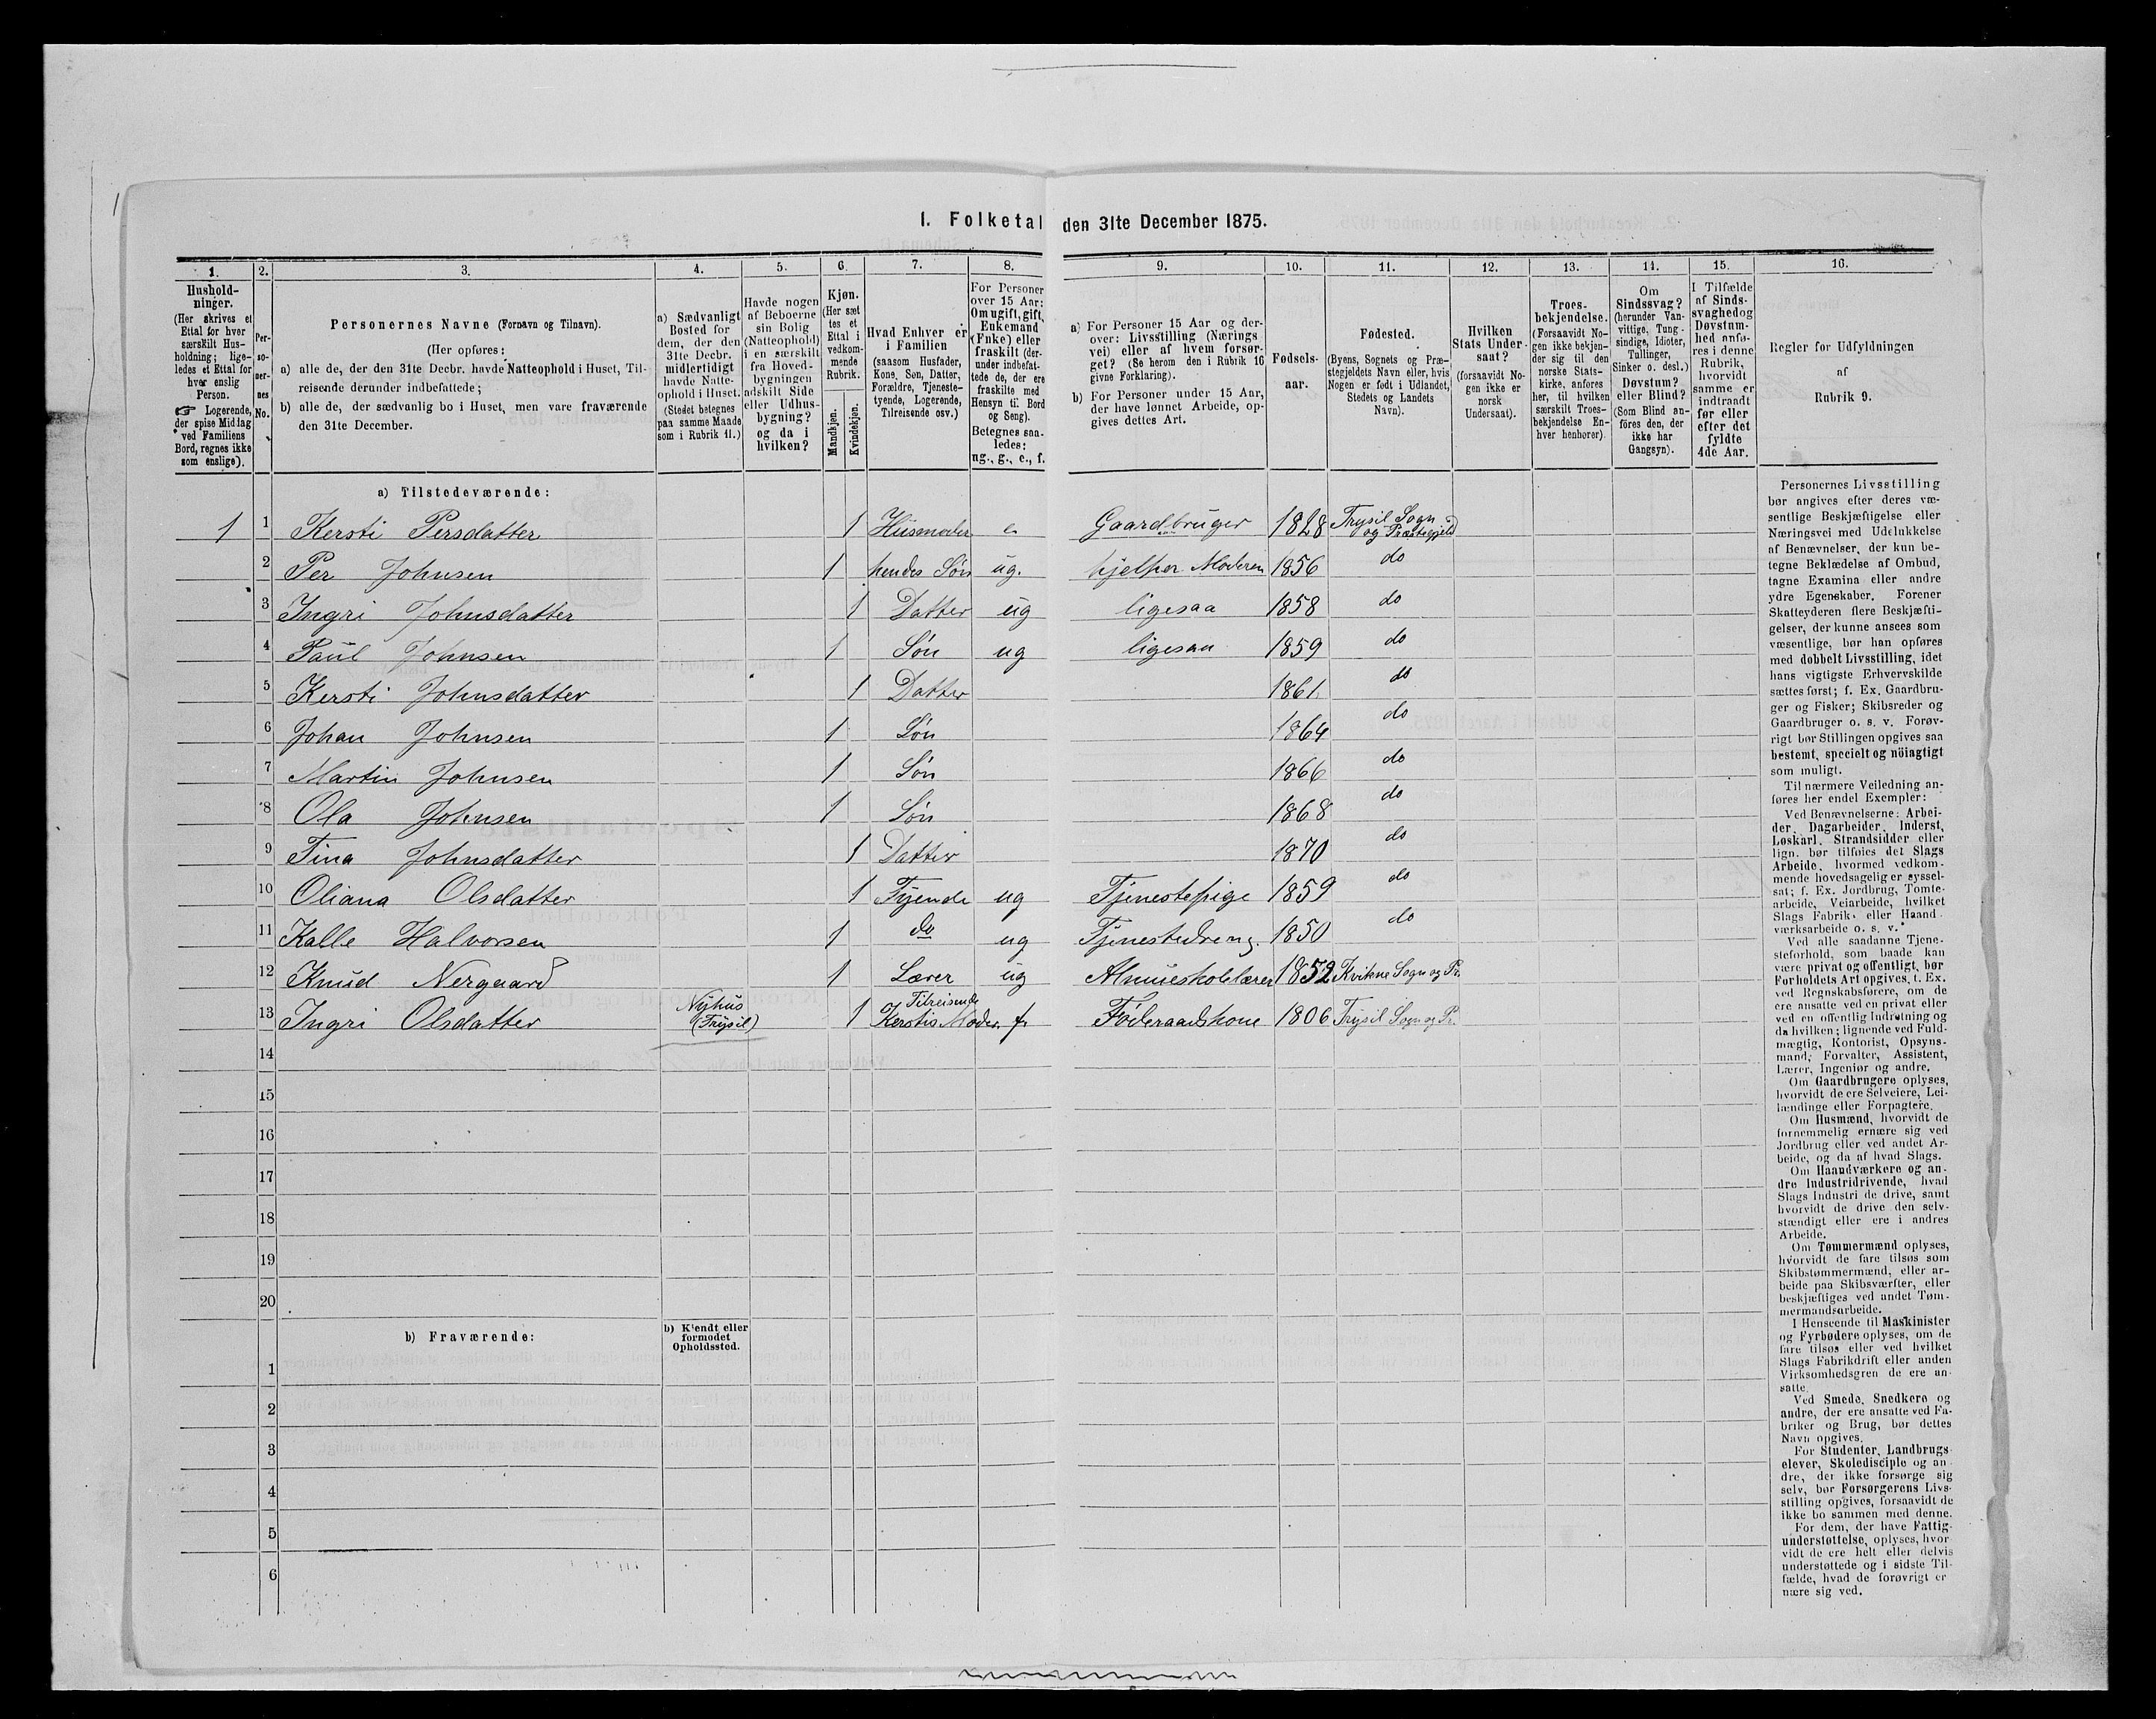 1. Folketal den 31te December 1875.
1. 2. 3. 4. 5. 6. 7. 8. 9. 10. 11. 12. 13. 14. 15. 16.
Hushold-
ninger.
(Her skrives et
Ettal for hver
særskilt Hus-
holdning; lige-
ledes et Ettal for
hver enslig
Person.
☞ Logerende,
der spise Middag
ved Familiens
Bord, regnes ikke
som enslige).
Per-
so-
ner-
nes
No.
Personernes Navne (Fornavn og Tilnavn).
(Her opføres:
a) alle de, der den 31te Decbr. havde Natteophold i Huset, Til-
reisende derunder indbefattede;
b) alle de, der sædvanlig bo i Huset, men vare fraværende
den 31te December.
a) Sædvanligt
Bosted for
dem, der den
31te Decbr.
midlertidigt
havde Natte-
ophold i Huset.
(Stedet betegnes
paa samme Maade
som i Rubrik 11.)
Havde nogen
af Beboerne
sin Bolig
(Natteophold)
i en særskilt
fra Hoved-
bygningen
adskilt Side
eller Udhus-
bygning?
og da i
hvilken?
Kjøn.
(Her sæt
tes et
Ettal i
vedkom-
mende
Rubrik.
Mandkjøn.
Kvindekjøn.
Hvad Enhver er
i Familien
(saasom Husfader,
Kone, Søn, Datter,
Forældre, Tjeneste-
tyende, Logerende,
Tilreisende osv.)
For Personer
over 15 Aar:
Om ugift, gift,
Enkemand
(Enke) eller
fraskilt (der-
under indbefat-
tede de, der ere
fraskilte med
Hensyn til Bord
og Seng).
Betegnes saa-
ledes:
ug., g., e., f.
a) For Personer 15 Aar og der-
over: Livsstilling (Nærings-
vei) eller af hvem forsør-
get? (Se herom den i Rubrik 16
givne Forklaring).
b) For Personer under 15 Aar,
der have lønnet Arbeide, op-
gives dettes Art.
Fødsels-
aar.
Fødested.
(Byens, Sognets og Præ-
stegjeldets Navn eller, hvis
Nogen er født i Udlandet,
Stedets og Landets
Navn).
Hvilken
Stats Under-
saat?
(forsaavidt No-
gen ikke er
norsk
Undersaat).
Troes-
bekjendelse.
(Forsaavidt No-
gen ikke bekjen-
der sig til den
norske Stats-
kirke, anføres
her, til hvilken
særskilt Troes-
bekjendelse En-
hver henhører).
Om
Sindssvag?
(herunder Van-
vittige, Tung-
sindige, Idioter,
Tullinger,
Sinker o. desl.)
Døvstum?
eller Blind?
(Som Blind an-
föres den, der
ikke har
Gangsyn).
I Tilfælde
af Sinds-
svaghed og
Døvstum-
hed anfø-
res i denne
Rubrik,
hvorvidt
samme er
indtraadt
før eller
efter det
fyldte
4de Aar.
Regler for Udfyldningen
af
Rubrik 9.
a) Tilstedeværende:
1 1 Kersti Persdatter 1 Husmoder e Gaardbruger 1828 Trysil Sogn og Præstegjeld
2 Per Johnsen 1 hendes Søn ug. hjelper Moderen 1856 do
3 Ingri Johnsdatter 1 Datter ug ligesaa 1858 do
4 Paul Johnsen 1 Søn ug ligesaa 1859 do
5 Kersti Johnsdatter 1 Datter 1861 do
6 Johan Johnsen 1 Søn 1864 do
7 Martin Johnsen 1 Søn 1866 do
8 Ola Johnsen 1 Søn 1868 do
9 Tina Johnsdatter 1 Datter 1870 do
10 Oliana Olsdatter 1 Tyende ug Tjenestepige 1859 do
11 Kalle Halvorsen 1 do ug Tjenestedreng. 1850 do
12 Knud Nergaard 1 Lærer ug Almueskolelærer 1852 Kvikne Sogn og Pr.
13 Ingri Olsdatter Nyhus (Trysil) 1 Tilreisende Kerstis Moder. f. Föderaadskone 1806 Trysil Sogn og Pr.
14
15
16
17
18
19
20
b) Fraværende:
b) Kjendt eller
formodet
Opholdssted.
1
2
3
4
5
6
Personernes Livsstilling
bør angives efter deres væ-
sentlige Beskjæftigelse eller
Næringsvei med Udelukkelse
af Benævnelser, der kun be-
tegne Beklædelse af Ombud,
tagne Examina eller andre
ydre Egenskaber. Forener
Skatteyderen flere Beskjæfti-
gelser, der kunne ansees som
væsentlige, bør han opføres
med dobbelt Livsstilling, idet
hans vigtigste Erhvervskilde
sættes først; f. Ex. Gaardbru-
ger og Fisker; Skibsreder og
Gaardbruger o. s. v. Forøv-
rigt bør Stillingen opgives saa
bestemt, specielt og nöiagtigt
som muligt.
Til nærmere Veiledning an-
føres her endel Exempler:
Ved Benævnelserne: Arbei-
der, Dagarbeider, Inderst,
Løskarl, Strandsidder eller
lign. bør tilføies det Slags
Arbeide, hvormed vedkom-
mende hovedsagelig er syssel-
sat; f. Ex. Jordbrug, Tomte-
arbeide, Veiarbeide, hvilket
Slags Fabrik- eller Haand-
værksarbeide o. s. v.
Ved alle saadanne Tjene-
steforhold, som baade kan
være privat og offentligt, bør
Forholdets Art opgives, t. Ex.
ved Regnskabsførere, om de
ere ansatte ved en privat eller
ved en offentlig Indretning og
da hvilken; lignende ved Fuld-
mægtig, Kontorist, Opsyns-
mand, Forvalter, Assistent,
Lærer, Ingeniør og andre.
Om Gaardbrugere oplyses,
hvorvidt de ere Selveiere, Lei-
lændinge eller Forpagtere.
Om Husmænd, hvorvidt de
fornemmelig ernære sig ved
Jordbrug eller ved andet Ar-
beide, og da af hvad Slags.
Om Haandværkere og an-
dre Industridrivende, hvad
Slags Industri de drive, samt
hvorvidt de drive den selv-
stændigt eller ere i andres
Arbeide.
Om Tømmermænd oplyses,
hvorvidt de fare tilsøs som
Skibstømmermænd, eller ar-
beide paa Skibsværfter, eller
beskjæftiges ved andet Tøm-
mermandsarbeide.
I Henseende til Maskinister
og Fyrbødere oplyses, om de
fare tilsøs eller ved hvilket
Slags Fabrikdrift eller anden
Virksomhedsgren de ere an-
satte.
Ved Smede, Snedkere og
andre, der ere ansatte ved Fa-
briker og Brug, bør dettes
Navn opgives.
For Studenter, Landbrugs-
elever, Skoledisciple og an-
dre, der ikke forsørge sig
selv, bør Forsørgerens Livs-
stilling opgives, forsaavidt de
ikke bo sammen med denne.
For dem, der have Fattig-
understøttelse, oplyses, hvor-
vidt de ere helt eller delvis
understøttede og i sidste Til-
fælde, hvad de forøvrigt er-
nære sig ved.